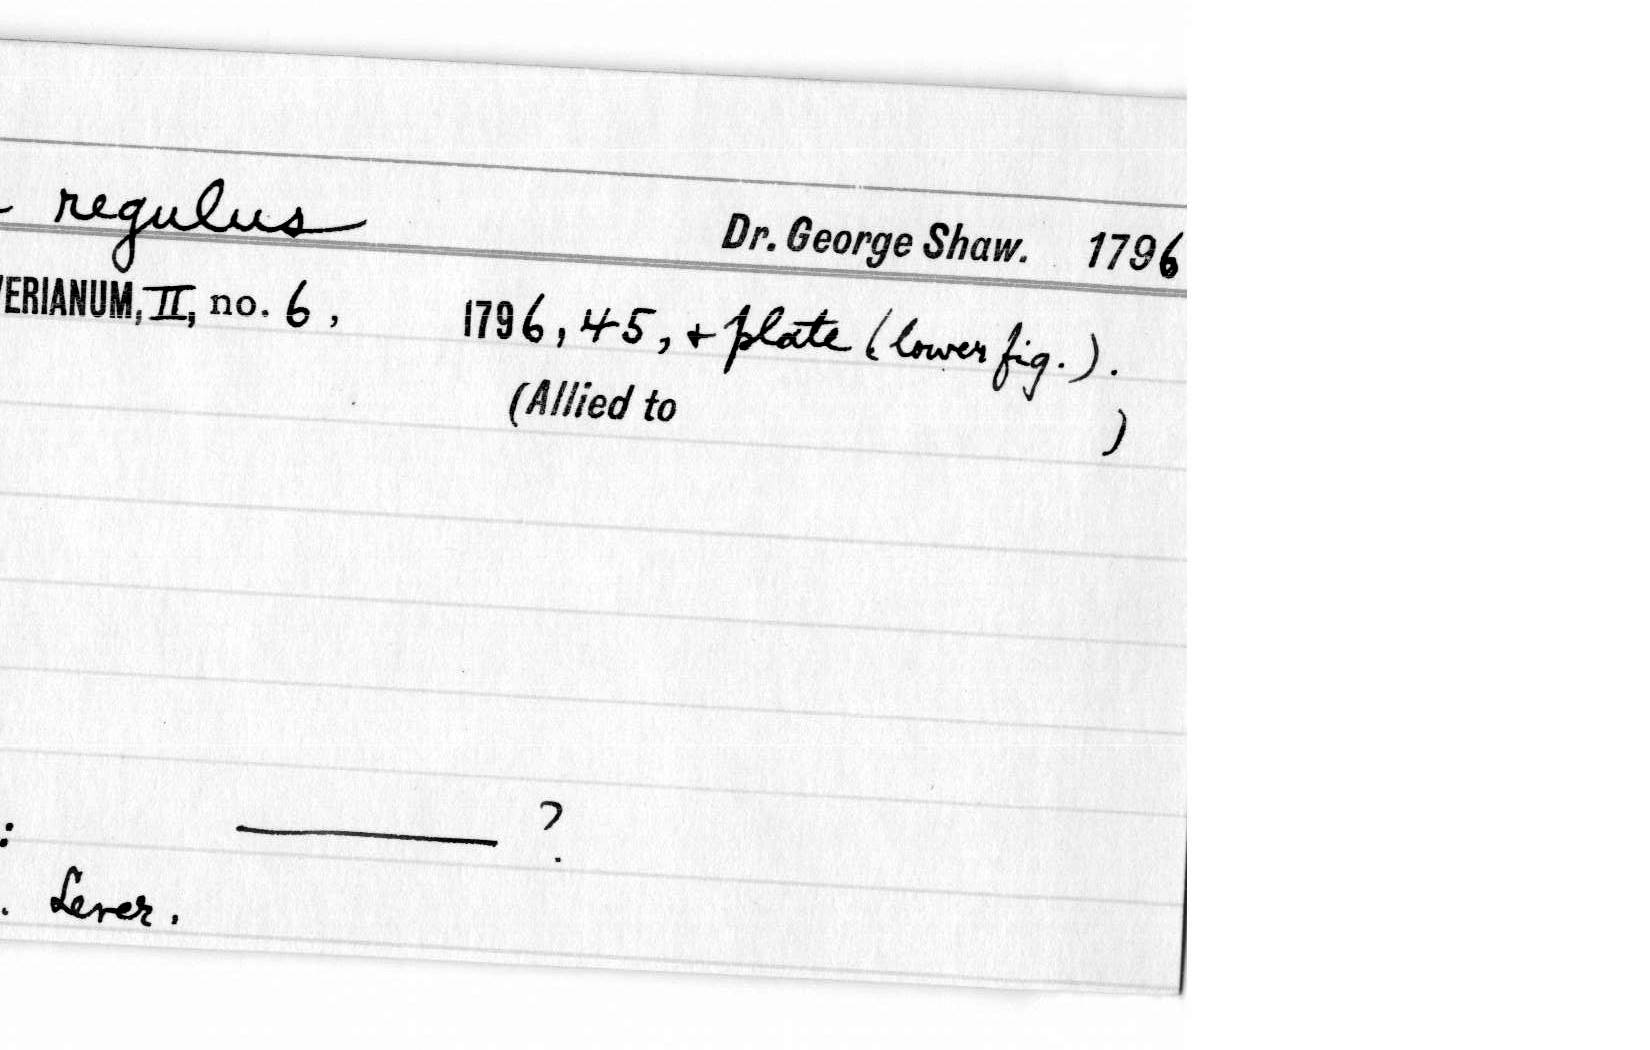 regulus Dr. George Shaw. 1796
VERIANUM, II, no. 6, 1796, 45, + plate (lower fig.).
(Allied to )
: ?
. Lever.